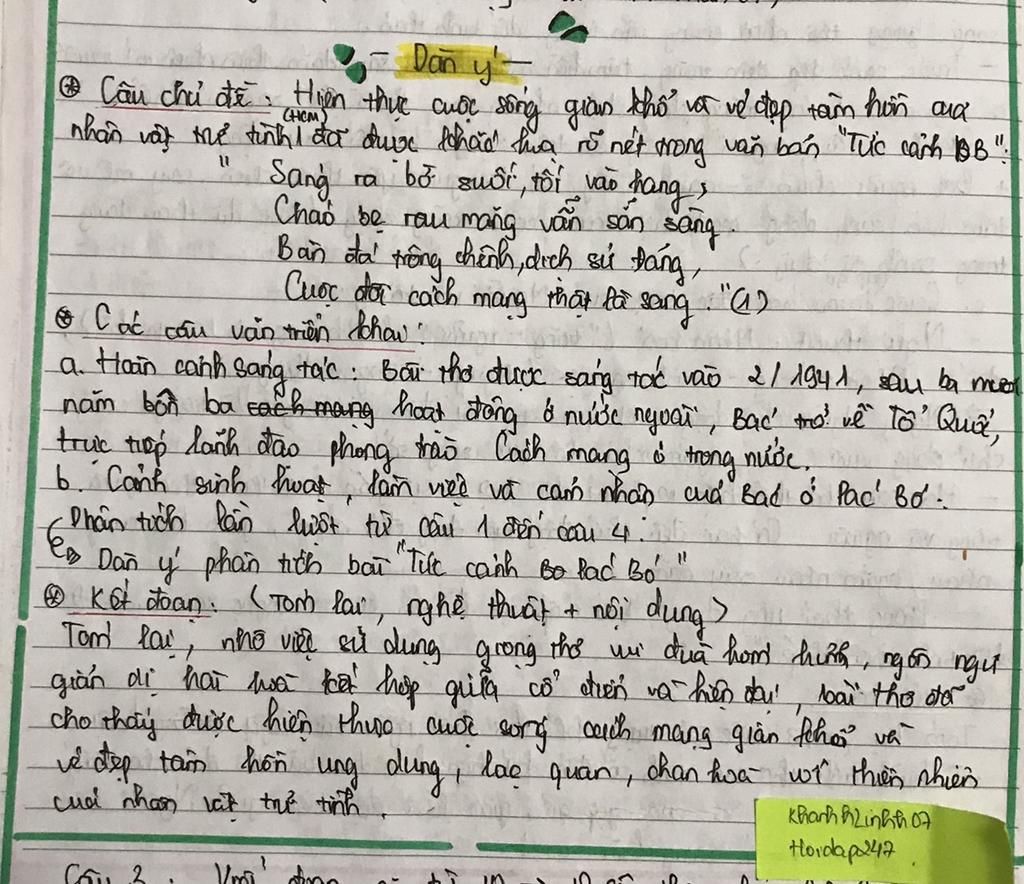 - Dàn ý -
* Câu chủ đề: Hiện thực cuộc sống gian khổ và vẻ đẹp tâm hồn của
nhân vật trữ tình (HCM) đã được khắc hoạ rõ nét trong văn bản "Tức cảnh PB":
" Sáng ra bờ suối, tối vào hang,
Cháo bẹ rau măng vẫn sẵn sàng.
Bàn đá trông chênh, dịch sử Đảng,
Cuộc đời cách mạng thật là sang." (1)
* Các câu văn triển khai:
a. Hoàn cảnh sáng tác: Bài thơ được sáng tác vào 2/1941, sau ba mươi
năm bôn ba cách mạng hoạt động ở nước ngoài, Bác trở về Tổ Quốc,
trực tiếp lãnh đạo phong trào Cách mạng ở trong nước.
b. Cảnh sinh hoạt, làm việc và cảm nhận của Bác ở Pác Bó:
Phân tích lần lượt từ câu 1 đến câu 4.
Dàn ý phân tích bài "Tức cảnh Bo Pác Bó"
* Kết đoạn: (Tóm lại, nghệ thuật + nội dung)
Tóm lại, nhờ việc sử dụng giọng thơ vui đùa hóm hỉnh, ngôn ngữ
giản dị hài hoà kết hợp giữa cổ điển và hiện đại, bài thơ đã
cho thấy được hiện thực cuộc sống cách mạng gian khổ và
vẻ đẹp tâm hồn ung dung, lạc quan, chan hoà với thiên nhiên
của nhân vật trữ tình.
Khanhhlinhth07
Hoidap247
Câu 2: